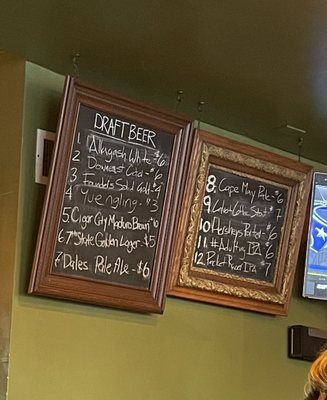 DRAFT BEER
1 Allagash White $6
2 Downeast Cider $6
3 Founders Solid Gold $4
4 Yuengling $3
5 Cigar City Maduro Brown $6
6 7th State Golden Lager $5
7 Dales Pale Ale $6
8 Cape May Pale $6
9 Stout $7
10 Hershey Porter $6
11 #Adulting IPA $6
12 IPA $7